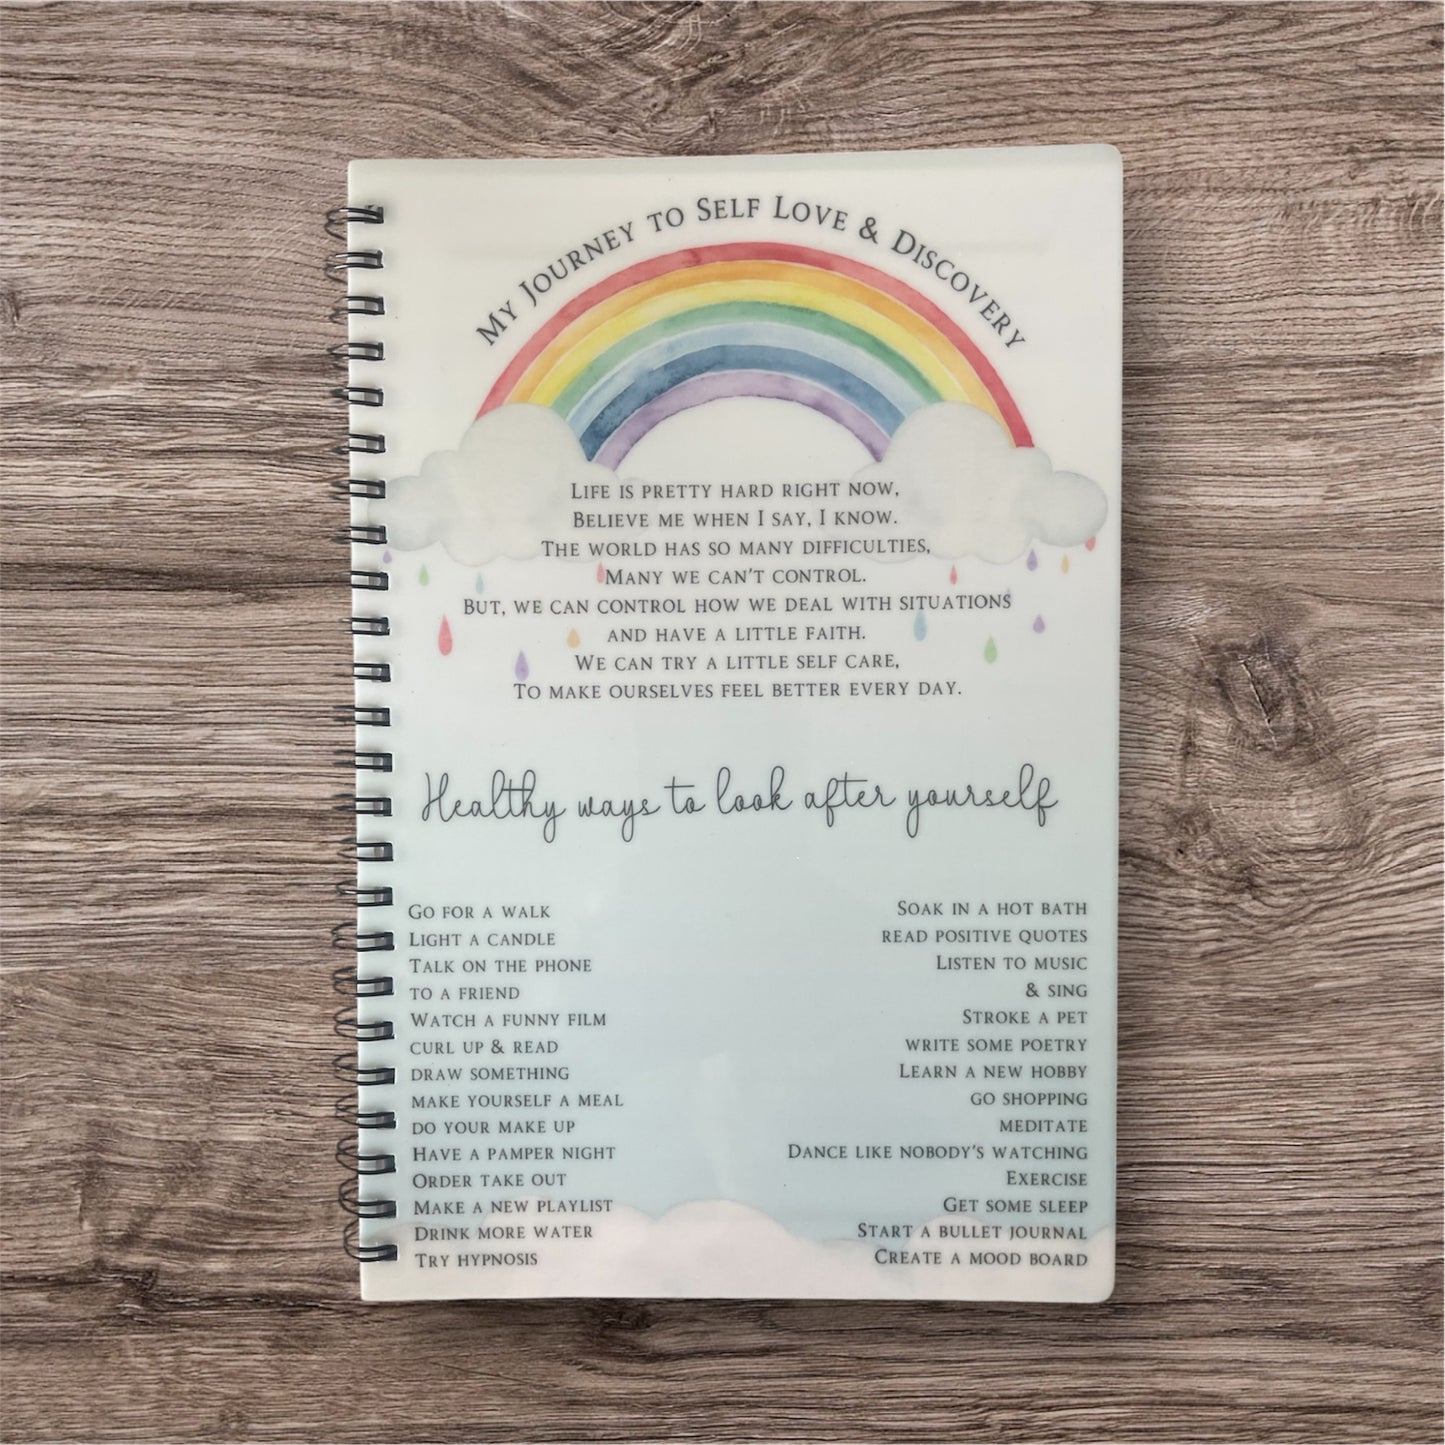 My Journey to Self Love & Discovery
Life is pretty hard right now,
Believe me when I say, I know.
The world has so many difficulties,
Many we can't control.
But, we can control how we deal with situations
and have a little faith.
We can try a little self care,
To make ourselves feel better every day.
Healthy ways to look after yourself
Go for a walk
Light a candle
Talk on the phone
to a friend
Watch a funny film
curl up & read
draw something
make yourself a meal
do your make up
Have a pamper night
Order take out
Make a new playlist
Drink more water
Try hypnosis
Soak in a hot bath
read positive quotes
Listen to music
& sing
Stroke a pet
write some poetry
Learn a new hobby
go shopping
meditate
Dance like nobody's watching
Exercise
Get some sleep
Start a bullet journal
Create a mood board